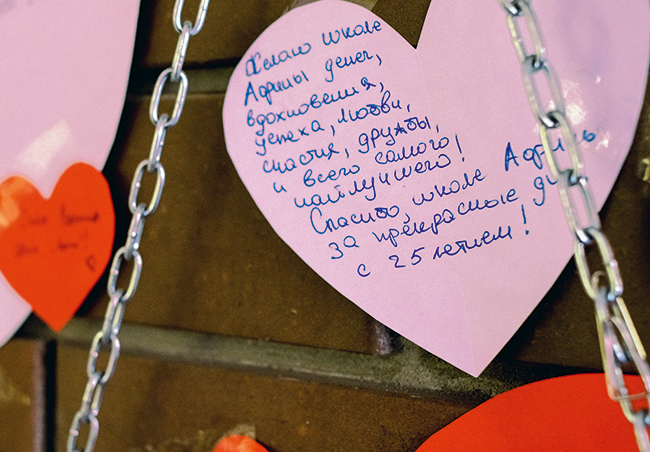 Желаю школе
Афины денег,
вдохновения,
успеха, любви,
счастия, дружбы,
и всего самого
наилучшего!
Спасибо, школе Афины
за прекрасные
с 25летием!